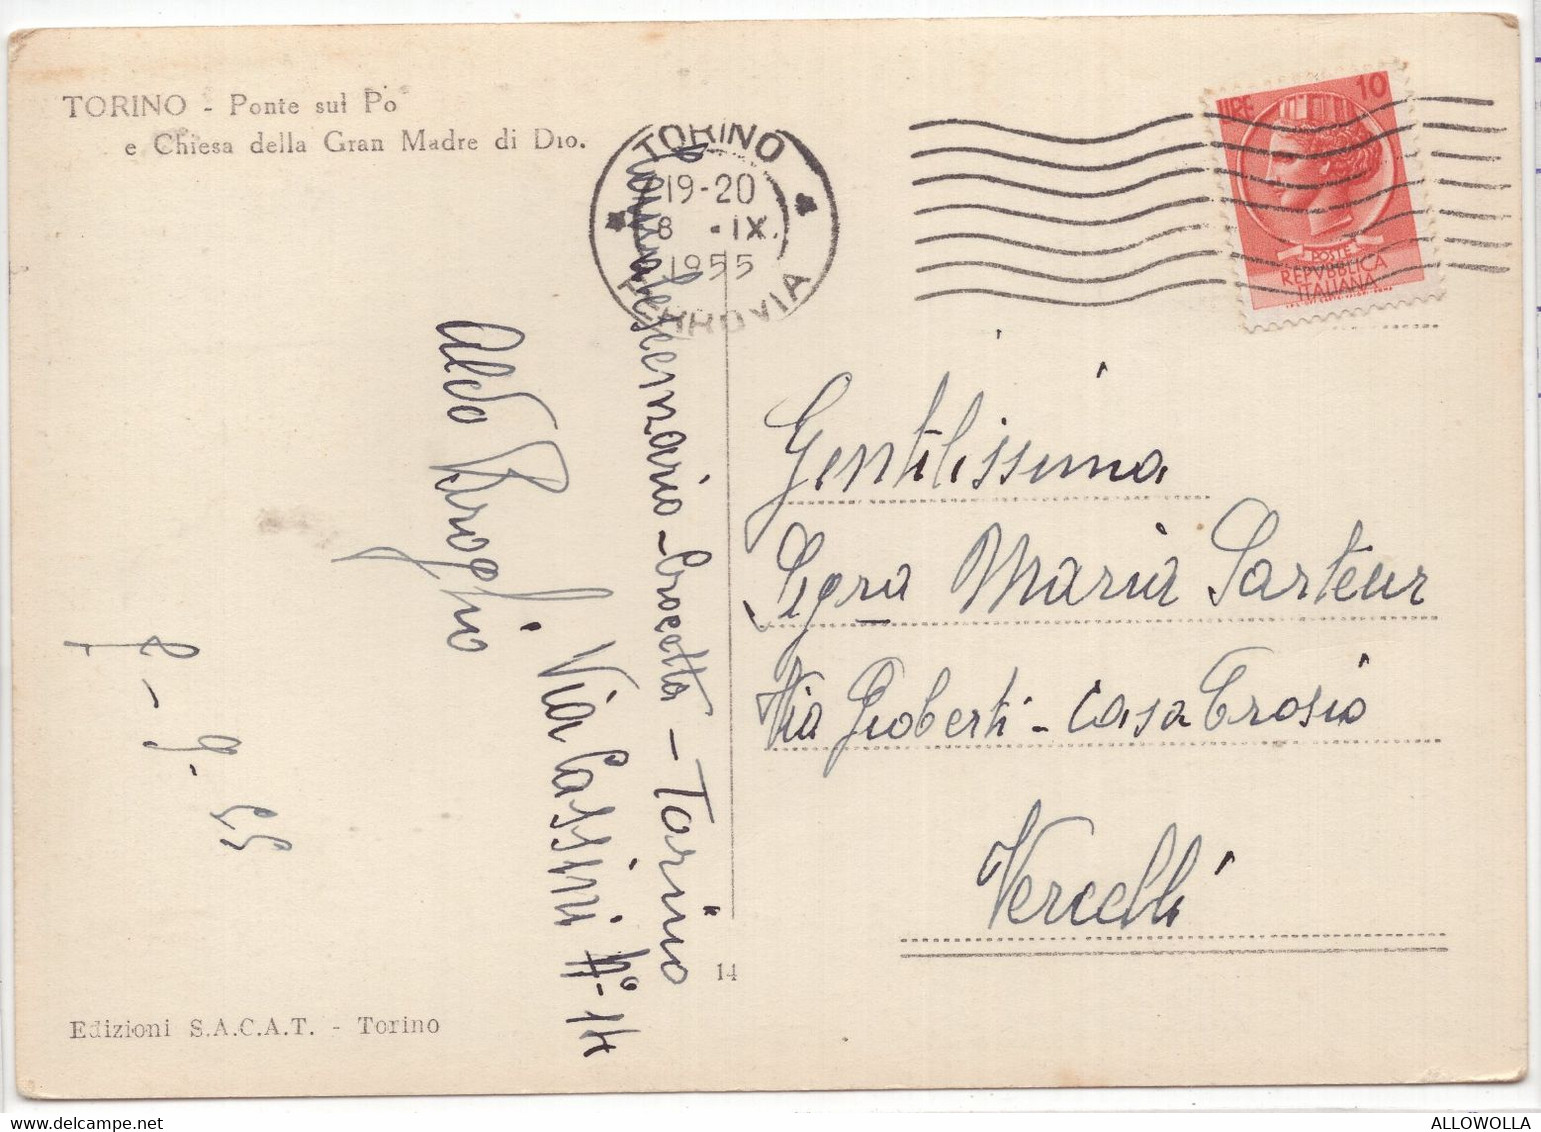 TORINO - Ponte sul Po
e Chiesa della Gran Madre di Dio.
TORINO
19-20
8 -IX.
1955
FERROVIA
LIRE 10
POSTE
REPVBBLICA
ITALIANA
Convalescenzario - Crocetta - Torino
Via Cassini N° - 14
Aldo Broglio
8-9-55
Gentilissima
Sigra Maria Sarteur
Via Gioberti - Casa Trosio
Vercelli
14
Edizioni S.A.C.A.T. - Torino
www.delcampe.net
ALLOWOLLA